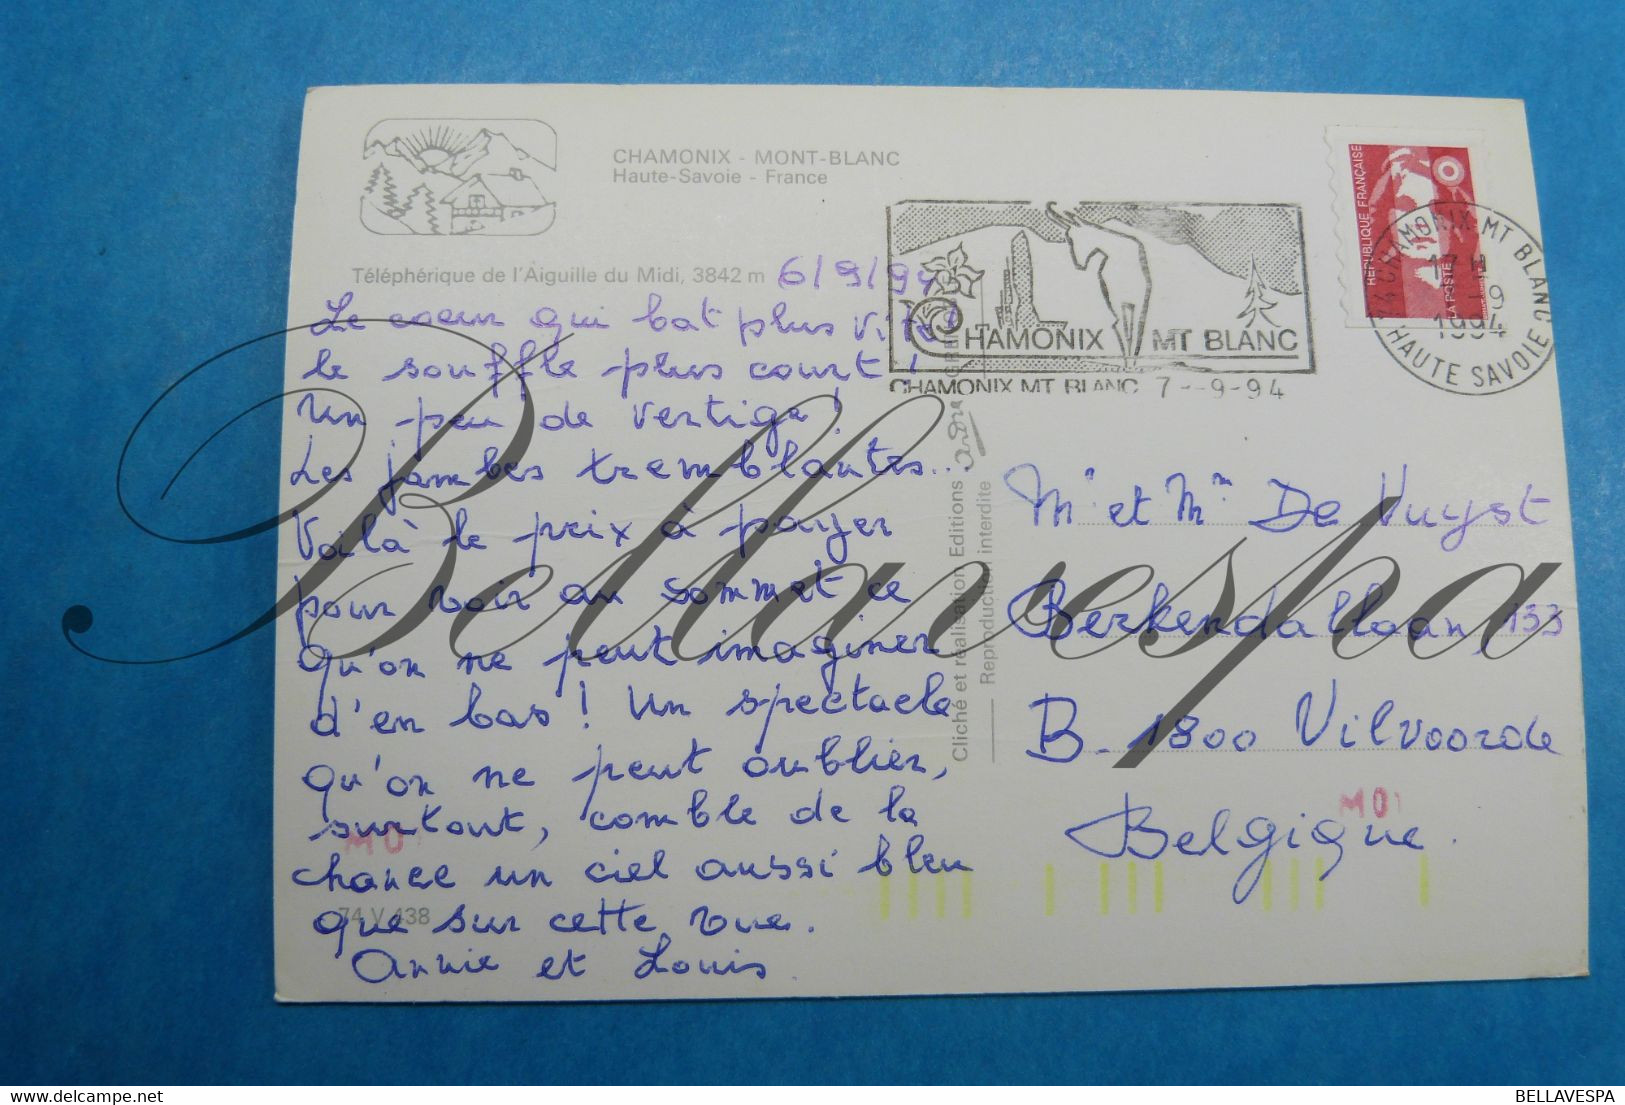 CHAMONIX - MONT-BLANC
Haute-Savoie - France
Téléphérique de l'Aiguille du Midi, 3842 m
6/9/94
Le coeur qui bat plus vite!
le souffle plus court!
Un peu de vertige!
Les jambes tremblantes...
Voilà le prix à payer
pour voir au sommet ce
qu'on ne peut imaginer
d'en bas! Un spectacle
qu'on ne peut oublier,
surtout, comble de la
chance un ciel aussi bleu
que sur cette vue.
Annie et Louis.
74 V 438
M0
Cliché et réalisation Editions
Reproduction interdite
CHAMONIX MT BLANC
CHAMONIX MT BLANC 7--9-94
RÉPUBLIQUE FRANÇAISE
LA POSTE
74 CHAMONIX-MT BLANC
17 H
7-9
1994
HAUTE SAVOIE
Mr et Mm De Vuyst
Berkendallaan, 133
B-1800 Vilvoorde
Belgique.
M01
Bellavespa
BELLAVESPA